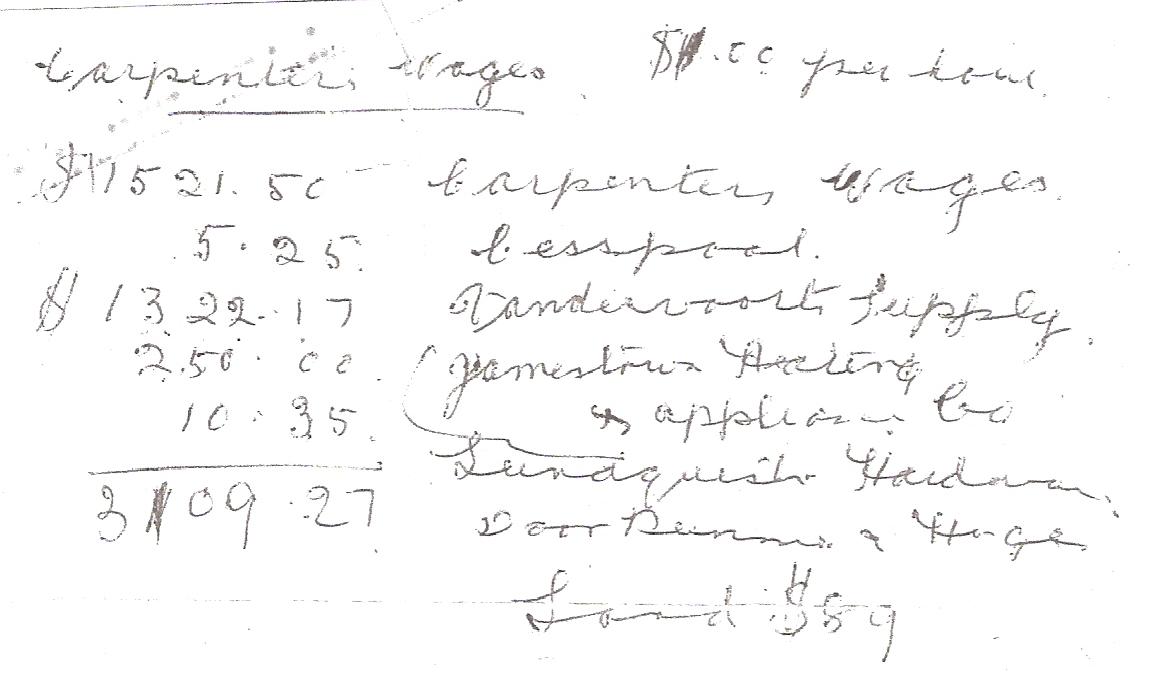 Carpenters wages $1.00 per hour
$1521.50 Carpenters wages.
5.25. Cesspool.
$1322.17 Vandervoort Supply.
250.00. Jamestown Heating
10.35. & appliance Co
Lundquist Hardware
3109.27 Door Runners & Hinges
Sand $89